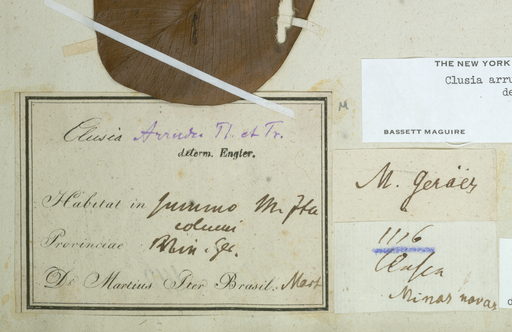 Clusia Arrudea Pl. et Tr.
determ. Engler.
Habitat in summo M. Ita
columi
Provinciae Min. Ger.
De Martius Iter Brasil. Mart
M
THE NEW YORK
Clusia arru
de
BASSETT MAGUIRE
M. Geräes
1116
Clusia
Minas novas